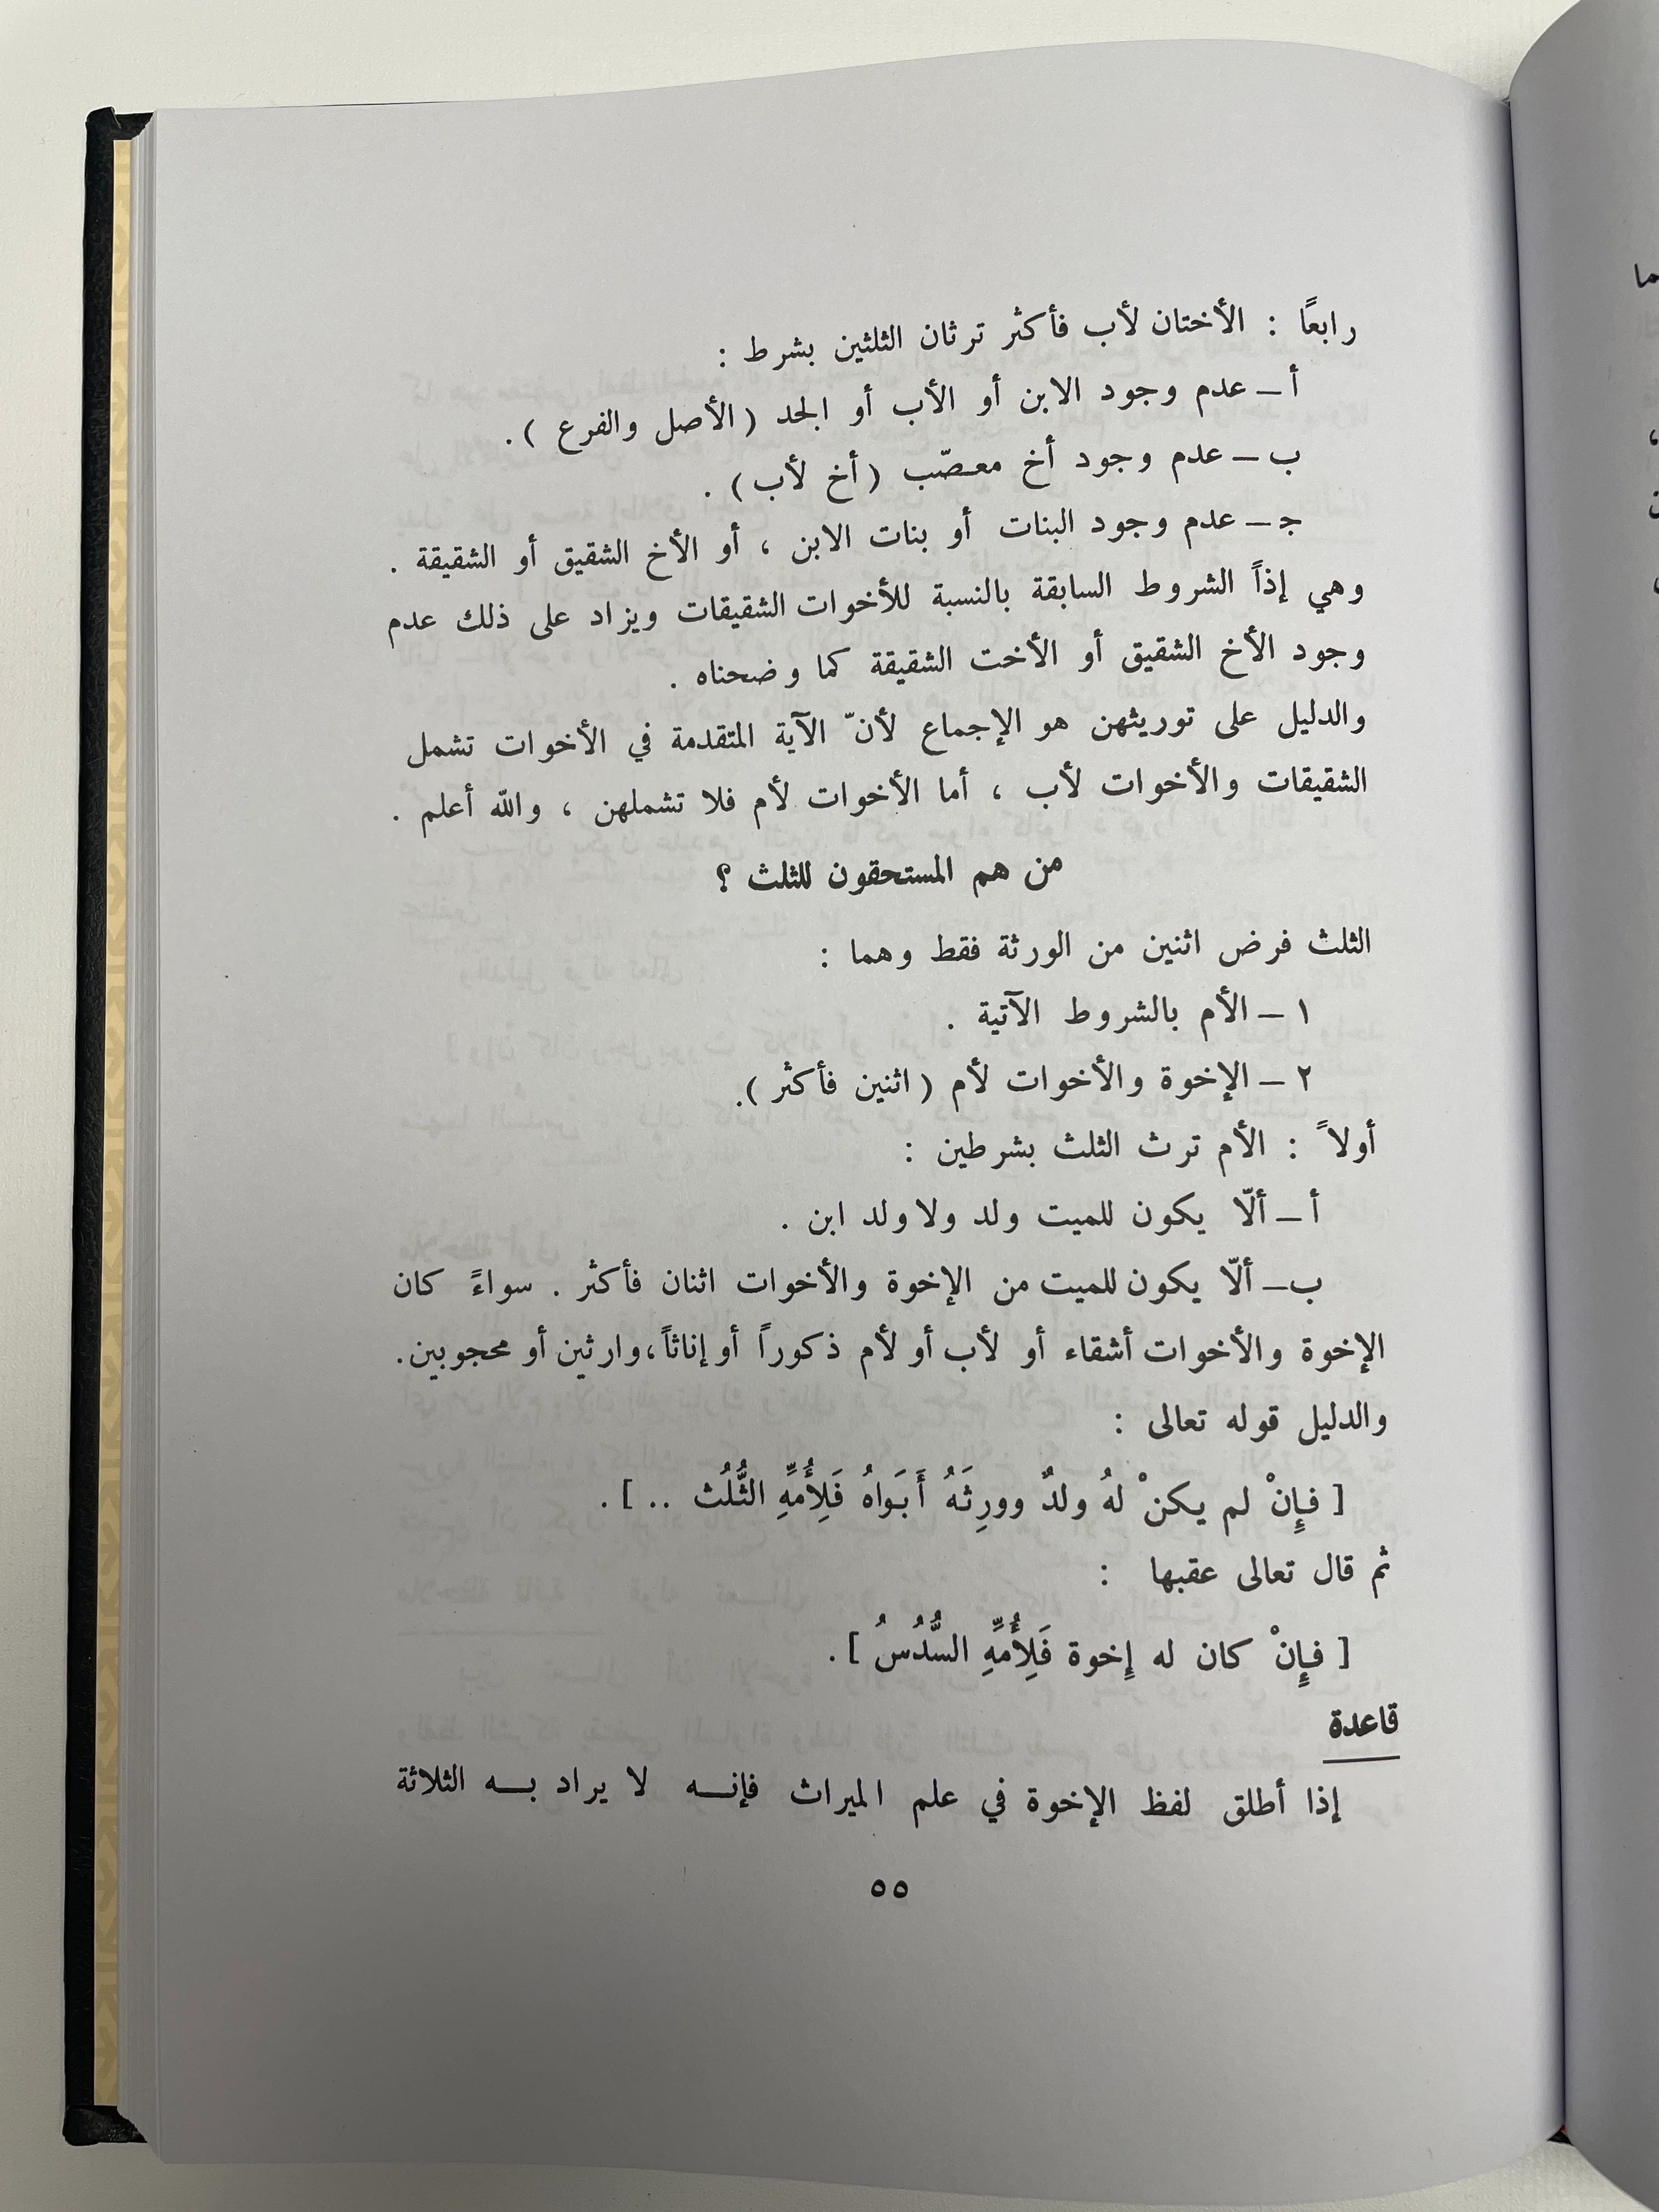 رابعًا : الأختان لأب فأكثر ترثان الثلثين بشرط :
أ – عدم وجود الابن أو الأب أو الجد (الأصل والفرع ).
ب – عدم وجود أخ معصّب (أخ لأب) .
جـ – عدم وجود البنات أو بنات الابن ، أو الأخ الشقيق أو الشقيقة .
وهي إذاً الشروط السابقة بالنسبة للأخوات الشقيقات ويزاد على ذلك عدم
وجود الأخ الشقيق أو الأخت الشقيقة كما وضحناه .
والدليل على توريثهن هو الإجماع لأنّ الآية المتقدمة في الأخوات تشمل
الشقيقات والأخوات لأب ، أما الأخوات لأم فلا تشملهن ، والله أعلم .
من هم المستحقون للثلث ؟
الثلث فرض اثنين من الورثة فقط وهما :
١ – الأم بالشروط الآتية .
٢ – الإخوة والأخوات لأم ( اثنين فأكثر ).
أولاً : الأم ترث الثلث بشرطين :
أ – ألّا يكون للميت ولد ولا ولد ابن .
ب – ألّا يكون للميت من الإخوة والأخوات اثنان فأكثر . سواءً كان
الإخوة والأخوات أشقاء أو لأب أو لأم ذكوراً أو إناثاً،وارثين أو محجوبين.
والدليل قوله تعالى :
[ فإِنْ لم يكنْ لهُ ولدٌ وورِثَهُ أَبَواهُ فَلِأُمِّهِ الثُّلُث .. ] .
ثم قال تعالى عقبها :
[ فإِنْ كان له إِخوة فَلِأُمِّهِ السُّدُسُ ] .
قاعدة
إذا أطلق لفظ الإخوة في علم الميراث فإنه لا يراد به الثلاثة
٥٥